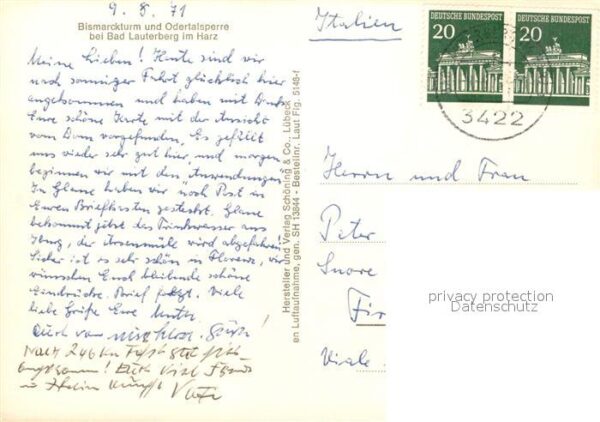 9. 8. 71
Bismarckturm und Odertalsperre
bei Bad Lauterberg im Harz
Meine Lieben! Heute sind wir
nach sonniger Fahrt glücklich hier
angekommen und haben mit Dank
Eure schöne Karte mit der Ansicht
vom Dom vorgefunden. Es gefällt
uns wieder sehr gut hier, und morgen
beginnen wir mit den Anwendungen.
In haben wir noch Post in
Euren Briefkasten gesteckt.
bekommt jetzt das Trinkwasser aus
der wird abgefahren.
Sicher ist es sehr schön in Florenz, wir
wünschen Euch bleibende schöne
Eindrücke. Brief folgt. Viele
liebe Grüße Eure Mutter.
Auch von
Nach 246 km Fahrt gut
angekommen! Euch viel Freude
Vater
Hersteller und Verlag Schöning & Co., Lübeck
en Luftaufnahme, gen. SH 13844 - Bestellnr. Laut Fig. 5148-f
Italien
DEUTSCHE BUNDESPOST
20
DEUTSCHE BUNDESPOST
20
3422
Herrn und Frau
Peter
Suore
Fir
Viale
privacy protection
Datenschutz